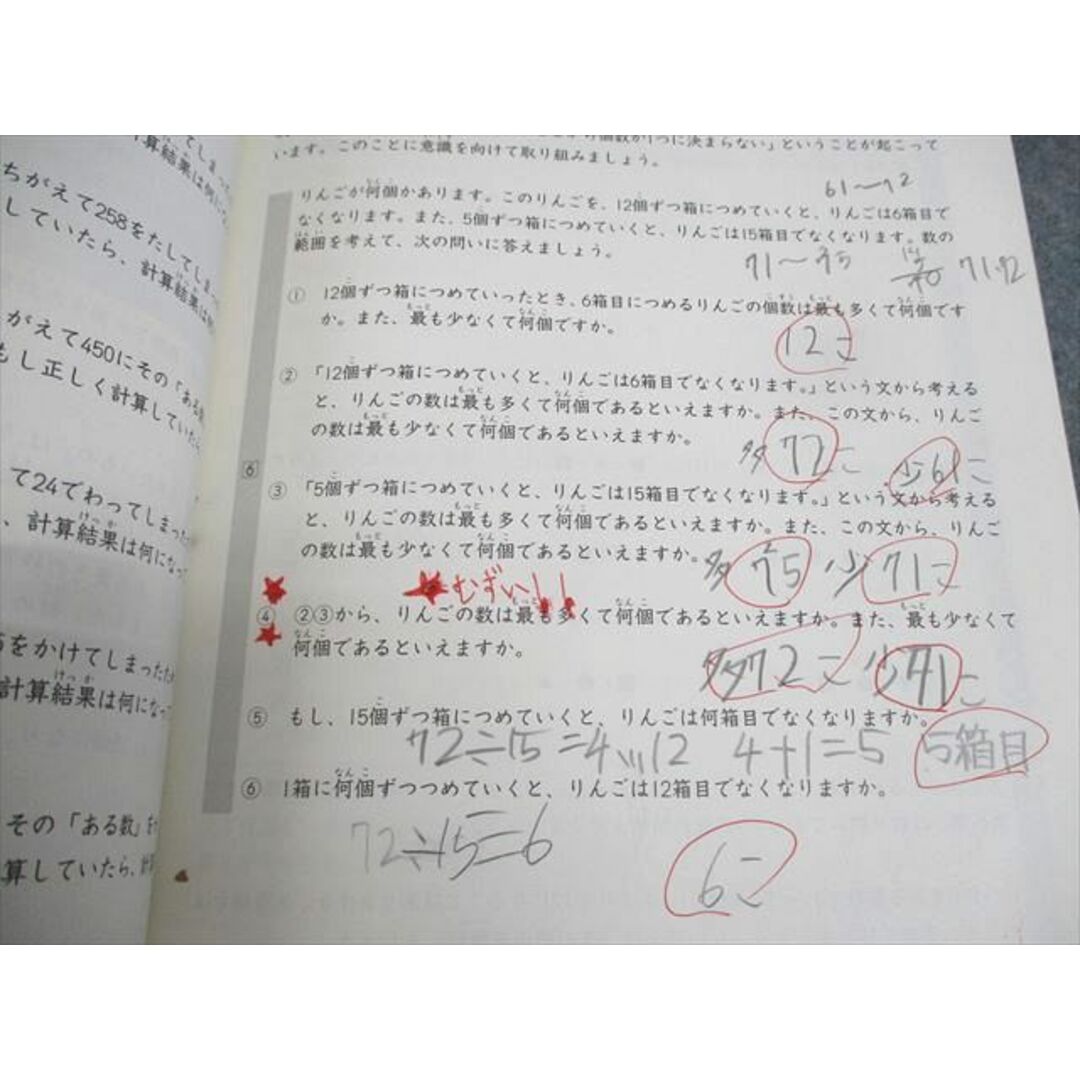 算結果は何に
ちがえて258をたしてしま
していたら、計算結果は何
がえて450にその「ある
もし正しく計算していたら
て24でわってしまった
、計算結果は何になっ
をかけてしまったた
計算結果は何になっ
その「ある数」を
算していたら、計
個数が1つに決まらない」ということが起こって
います。このことに意識を向けて取り組みましょう。
61〜72
りんごが何個かあります。このりんごを、12個ずつ箱につめていくと、りんごは6箱目で
なくなります。また、5個ずつ箱につめていくと、りんごは15箱目でなくなります。数の
範囲を考えて、次の問いに答えましょう。
71〜75
71、72
① 12個ずつ箱につめていったとき、6箱目につめるりんごの個数は最も多くて何個です
か。また、最も少なくて何個ですか。
12こ
② 「12個ずつ箱につめていくと、りんごは6箱目でなくなります。」という文から考える
と、りんごの数は最も多くて何個であるといえますか。また、この文から、りんご
の数は最も少なくて何個であるといえますか。
多72こ 少61こ
6
③ 「5個ずつ箱につめていくと、りんごは15箱目でなくなります。」という文から考える
と、りんごの数は最も多くて何個であるといえますか。また、この文から、りんご
の数は最も少なくて何個であるといえますか。
多75 少71こ
★むずい!!
④ ②③から、りんごの数は最も多くて何個であるといえますか。また、最も少なくて
何個であるといえますか。
多72こ 少71こ
⑤ もし、15個ずつ箱につめていくと、りんごは何箱目でなくなりますか。
72÷15=4…12 4+1=5 5箱目
⑥ 1箱に何個ずつつめていくと、りんごは12箱目でなくなりますか。
72÷15=6
6こ